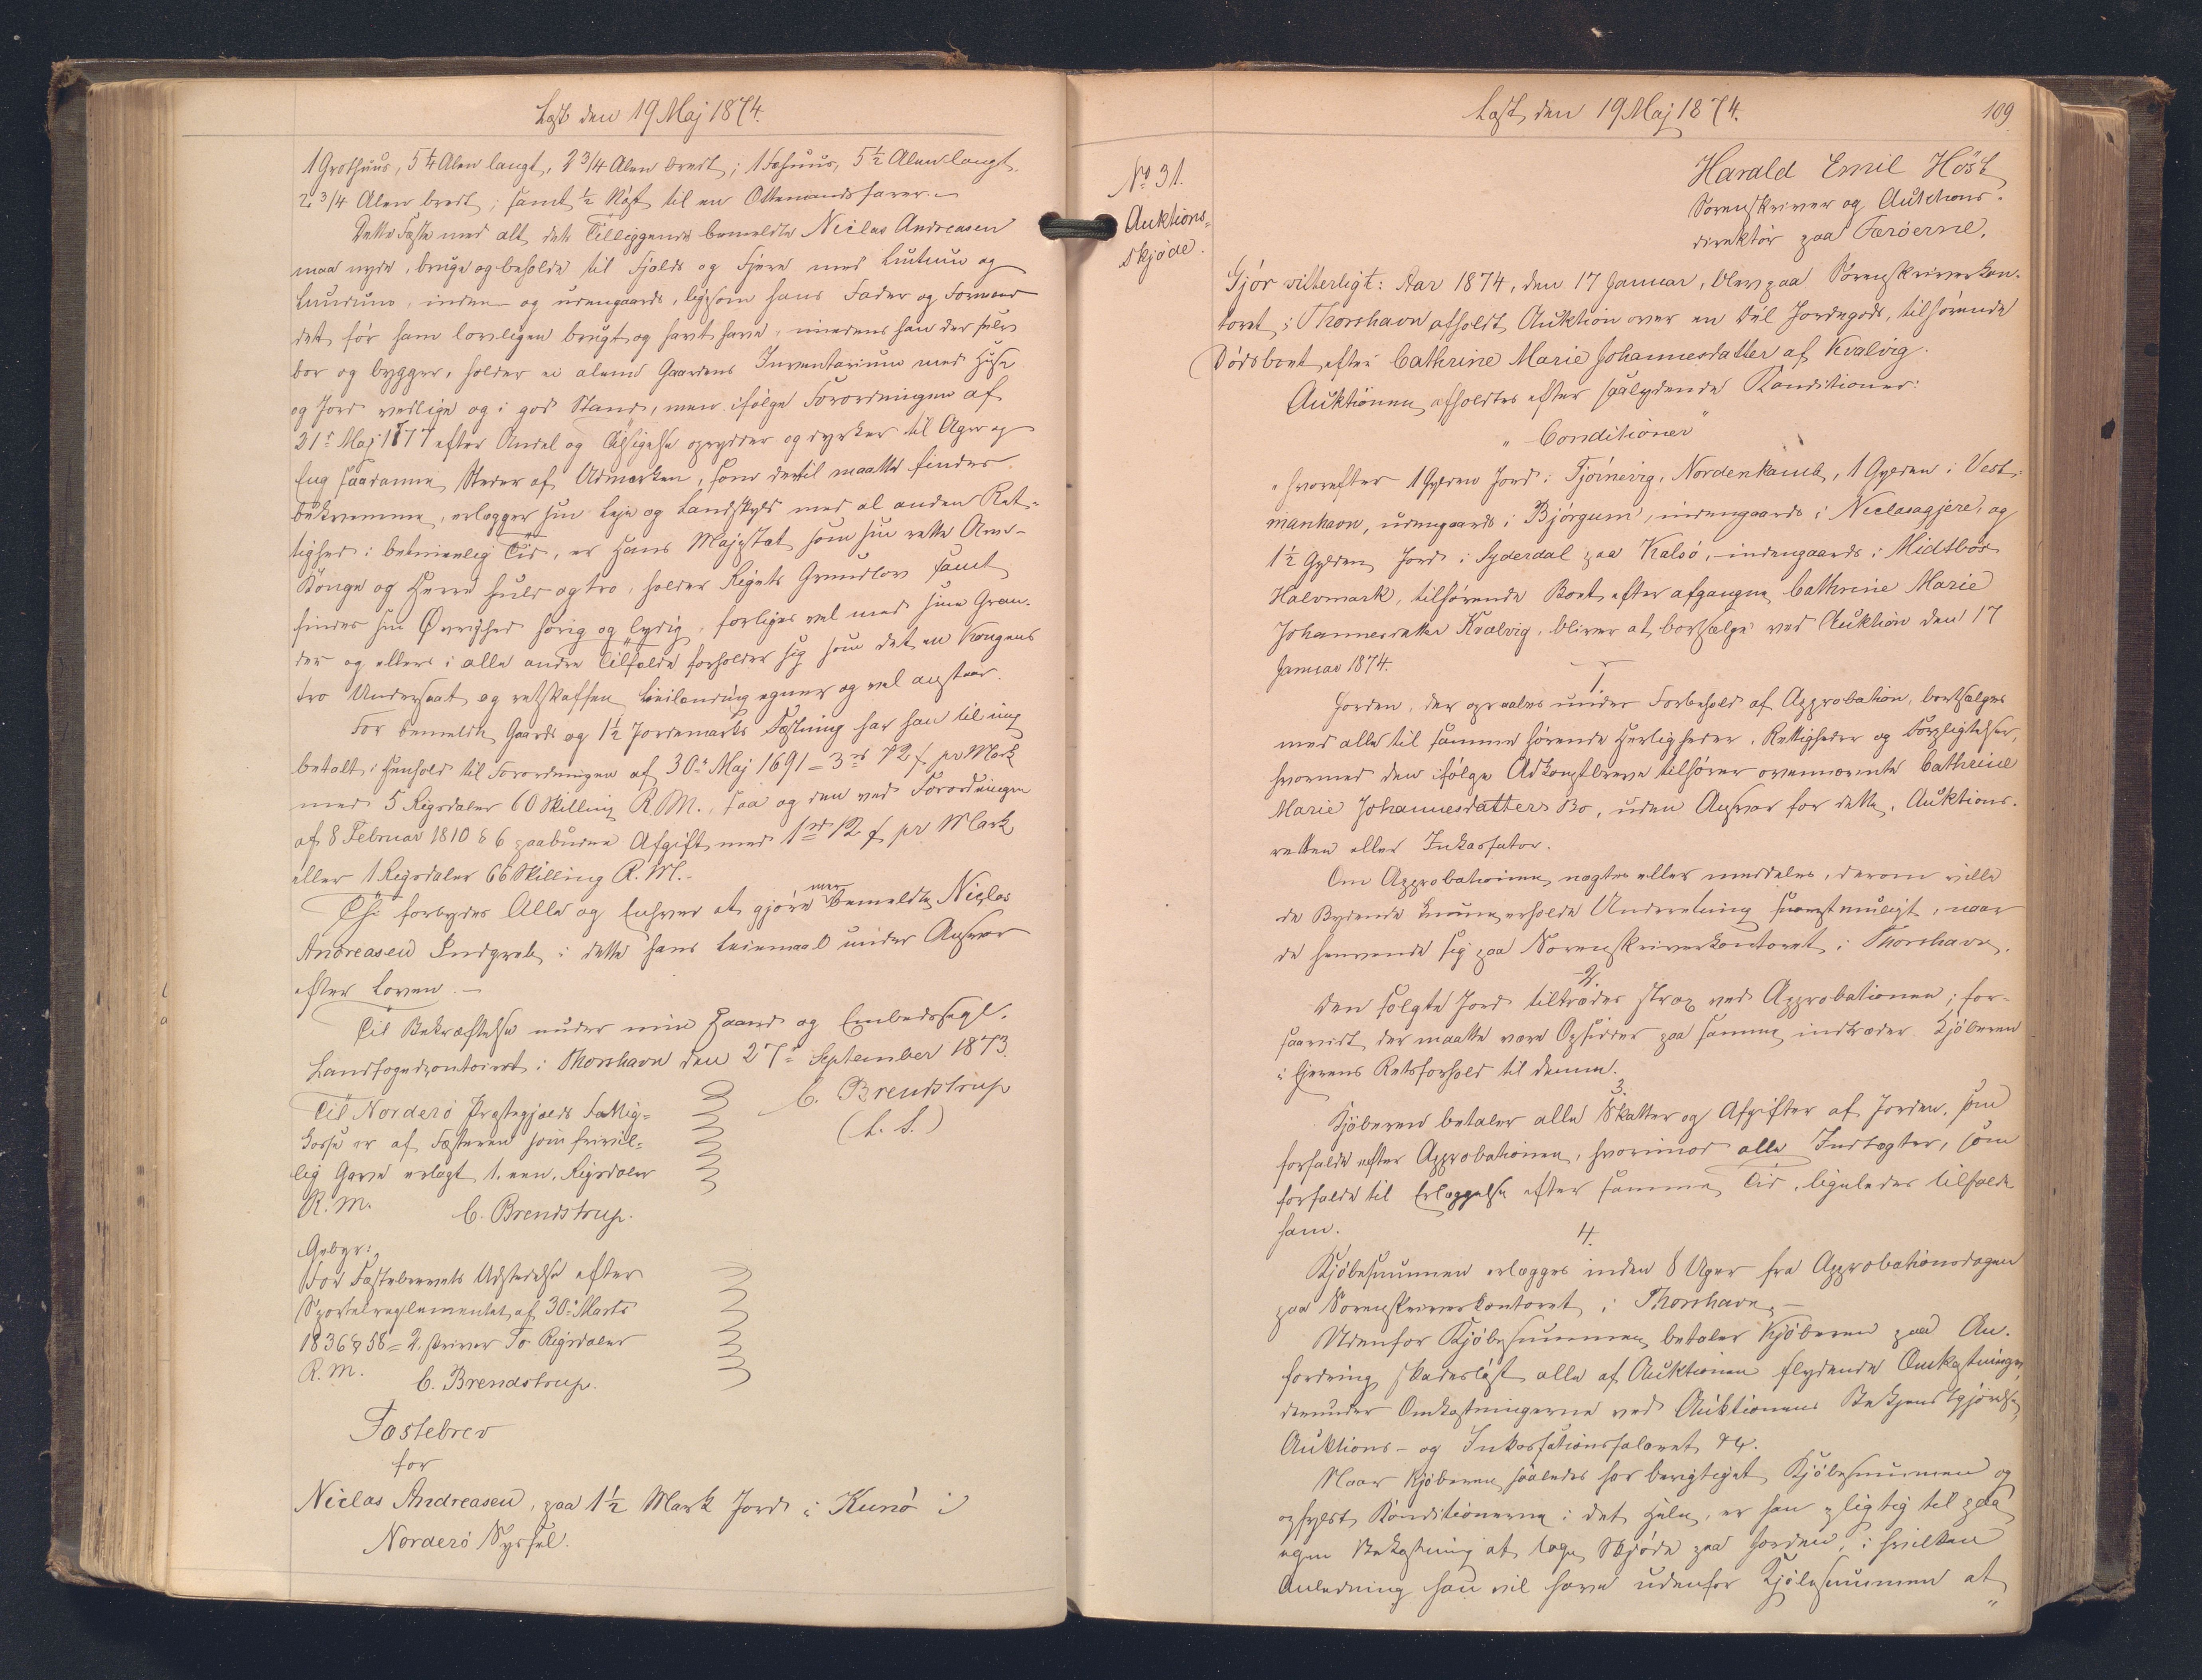 Læst den 19 Maj 1874.
1 Grothuus, 5 1/4 Alen langt, 2 3/4 Alen bredt; 1 Fæhuus, 5 1/2 Alen langt,
2 3/4 Alen bredt; samt 1/2 Nøst til en Ottemandsfarer.
Dette Fæste med alt dets Tilliggende bemeldte Niclas Andreasen
maa nyde, bruge og beholde til Fjelds og Fjære med Luttum og
Lunnum, inden- og udengaards, ligesom hans Fader og Formænd
det før ham lovligen brugt og havt have, imedens han der selv
bor og bygger, holder ei alene Gaardens Inventarium med Huse
og Jord vedlige og i god Stand, men ifølge Forordningen af
21de Maj 1777 efter Andel og Tilsigelse oprydder og dyrker til Ager og
Eng saadanne Steder af Udmarken, som dertil maatte findes
bekvemme, erlægger sin Leje og Landskyld med al anden Ret-
tighed i betimelig Tid, er Hans Majestæt som sin rette Arve-
Konge og Herre huld og tro, holder Rigets Grundlov samt
findes sin Øvrighed hørig og lydig, forliges vel med sine Gran-
der og ellers i alle andre Tilfælde forholder sig som det en Kongens
tro Undersaat og retskaffen Leilænding egner og vel anstaar.
For bemeldte Gaards og 1 1/2 Jordemarks Fæstning har han til mig
betalt i Henhold til Forordningen af 30te Maj 1691 = 3 rd 72 s. pr Mark
med 5 Rigsdaler 60 Skilling R.M., saa og den ved Forordningen
af 8 Februar 1810 § 6 paabudne Afgift med 1 rd 12 s. pr Mark
eller 1 Rigsdaler 66 Skilling R.M.-
Thi forbydes Alle og Enhver at gjøre mer bemeldte Niclas
Andreasen Indgreb i dette hans Leiemaal under Ansvar
efter Loven.-
Til Bekræftelse under min Haand og Embedssegl.
Landfogedcontoiret i Thorshavn den 27de September 1873.
C. Brendstrup
(L. S.)
Til Norderø Præstegjælds Fattig-
kasse er af Fæsteren som frivil-
lig Gave erlagt 1. een. Rigsdaler
R.M.
C. Brendstrup.
Gebyr:
For Fæstebrevets Udstedelse efter
Sportelreglementet af 30te Marts
1836 § 58 = 2. skriver To Rigsdaler
R.M.
C. Brendstrup.
Fæstebrev
for
Niclas Andreasen, paa 1 1/2 Mark Jord i Kunø i
Norderø Syssel.
Læst den 19 Maj 1874.
109
No 31.
Auktions-
skjøde.
Harald Emil Høst
Sorenskriver og Auktions-
direktør paa Færøerne,
Gjør vitterligt: Aar 1874, den 17 Januar, blev paa Sorenskriverkon-
toret i Thorshavn afholdt Auktion over en Del Jordegods, tilhørende
Dødsboet efter Cathrine Marie Johannesdatter af Kvalvig.
Auktionen afholdtes efter saalydende Konditioner:
"Conditioner"
"hvorefter 1 Gylden Jord i Tjörnevig, Nordenkamb, 1 Gylden i Vest-
manhavn, udengaards i Bjørgum, indengaards i Niclasagjere, og
1 1/2 Gylden Jord i Syderdal paa Kalsø, indengaards i Midtbøs
Halvmark, tilhørende Boet efter afgangne Cathrine Marie
Johannesdatter Kvalvig, bliver at bortsælge ved Auktion den 17
Januar 1874.
1.
Jorden, der opraabes under Forbehold af Approbation, bortsælges
med alle til samme hørende Herligheder, Rettigheder og Forpligtelser,
hvormed den ifølge Adkomstbreve tilhører ovennævnte Cathrine
Marie Johannesdatters Bo, uden Ansvar for dette, Auktions-
retten eller Inkassator.
Om Approbationen nægtes eller meddeles, derom ville
de Bydende kunne erholde Underretning snarest muligt, naar
de henvende sig paa Sorenskriverkontoret i Thorshavn.
2.
Den solgte Jord tiltrædes strax ved Approbationen; for-
saavidt der maatte være Opsidder paa samme, indtræder Kjøberen
i Ejerens Retsforhold til denne.
3.
Kjøberen betaler alle Skatter og Afgifter af Jorden, som
forfalde efter Approbationen, hvorimod alle Indtægter, som
forfalde til Erlæggelse efter samme Tid, ligeledes tilfalde
ham.
4.
Kjøbesummen erlægges inden 8 Uger fra Approbationsdagen
paa Sorenskriverkontoret i Thorshavn.-
Udenfor Kjøbesummen betaler Kjøberen paa An-
fordring skadesløst alle af Auktionen flydende Omkostninger,
derunder Omkostningerne ved Auktionens Bekjendtgjørelse,
Auktions- og Inkassationssalæret &c.
Naar Kjøberen saaledes har berigtiget Kjøbesummen og
opfyldt Konditionerne i det Hele, er han pligtig til paa
egen Bekostning at tage Skjøde paa Jorden, i hvilken
Anledning han vil have udenfor Kjøbesummen at
"